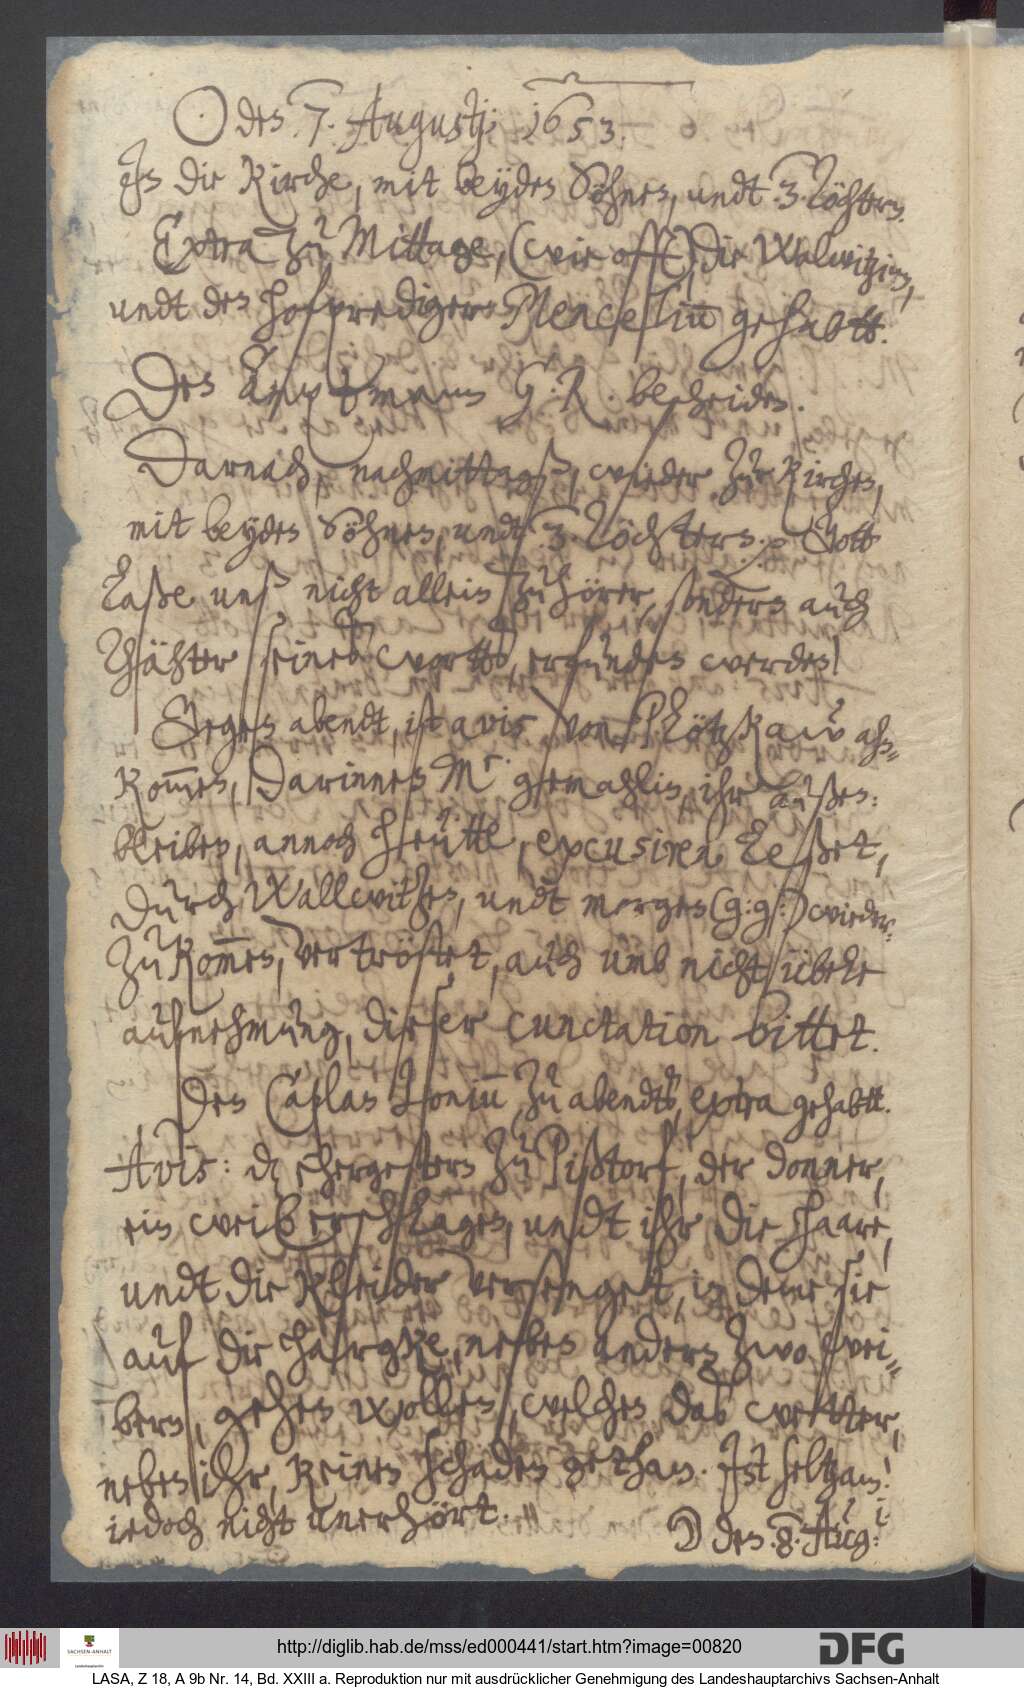 ☉ den .7. Augustj: 1653.
In die Kirche, mit beyden Söhnen, undt .3. Töchtern.
Extra zu Mittage, (wie offt) die Walwitzinn,
undt den hofprediger Mencelium gehabtt.
Des Amptmanns G: R. bescheiden.
Darnach, nachmittagß, wieder zur Kirchen,
mit beyden Söhnen, undt .3. Töchtern. Gott
laße unß nicht allein Zuhörer, sondern auch
Thähter seines worttes, erfunden werden!
Gegen abendt, ist avis von Plötzkaw ahn-
kommen, Darinnen Mr. gemahlin, ihr außen:
bleiben, annoch heütte, excusiren leßet,
durch Wallwitzen, undt morgen (g: g:) wieder-
zukommen, vertröstet, auch umb nicht übele
aufnehmung, dieser cunctation bittet.
Den Caplan Jonium zu abendts, extra gehabtt.
Avis: dz ehergestern zu Pißtorf, der donner,
ein weib erschlagen, undt ihr die haare,
undt die Kleider versenget, in deme sie
auf die harcke, neben andern zwo wei-
bern, gehen wollen, welchen das wetter,
neben ihr, keinen schaden gethan. Ist seltzam!
iedoch nicht unerhört.
☽ den .8. Aug:
http://diglib.hab.de/mss/ed000441/start.htm?image=00820
DFG
SACHSEN-ANHALT
Landeshauptarchiv
LASA, Z 18, A 9b Nr. 14, Bd. XXIII a. Reproduktion nur mit ausdrücklicher Genehmigung des Landeshauptarchivs Sachsen-Anhalt